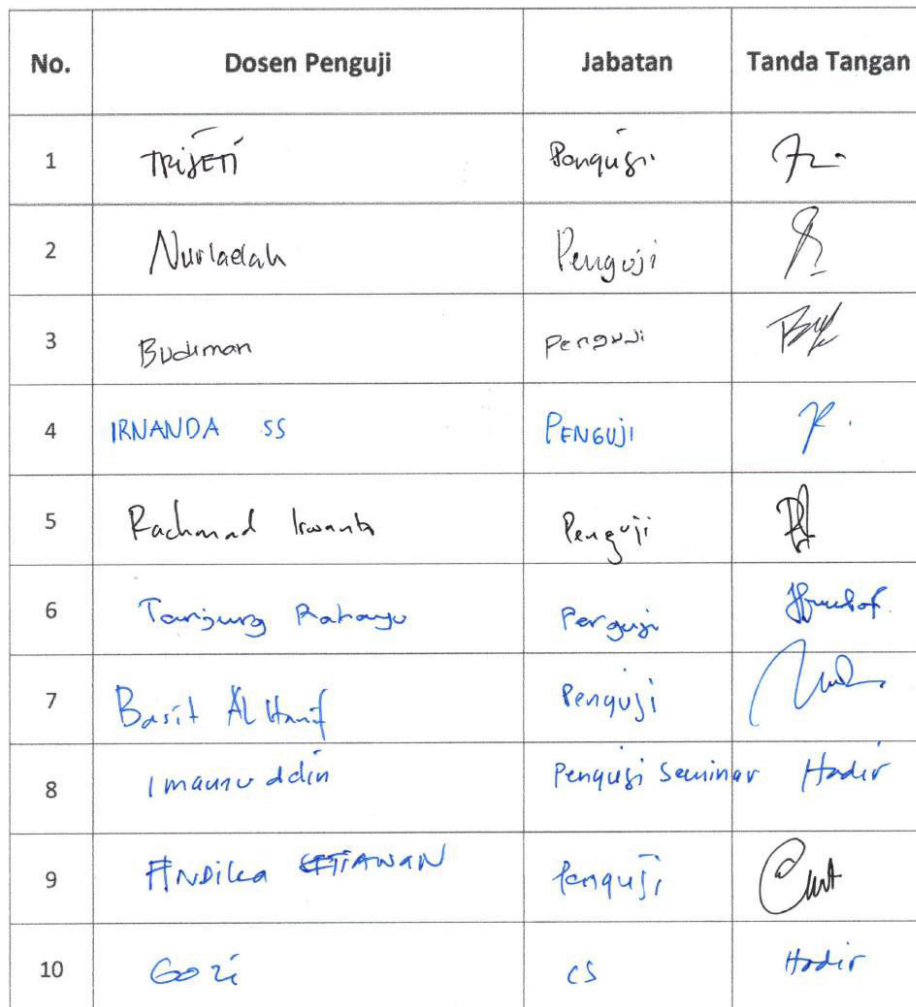 No. Dosen Penguji Jabatan Tanda Tangan
1 TRIJETI Penguji
2 Nurlaelah Penguji
3 Budiman Penguji
4 IRNANDA SS PENGUJI
5 Rachmad Irwanto Penguji
6 Tanjung Rahayu Penguji
7 Basit Al Hanif Penguji
8 Imamuddin Penguji Seminar Hadir
9 ANDika SETIAWAN Penguji
10 Gozi CS Hadir